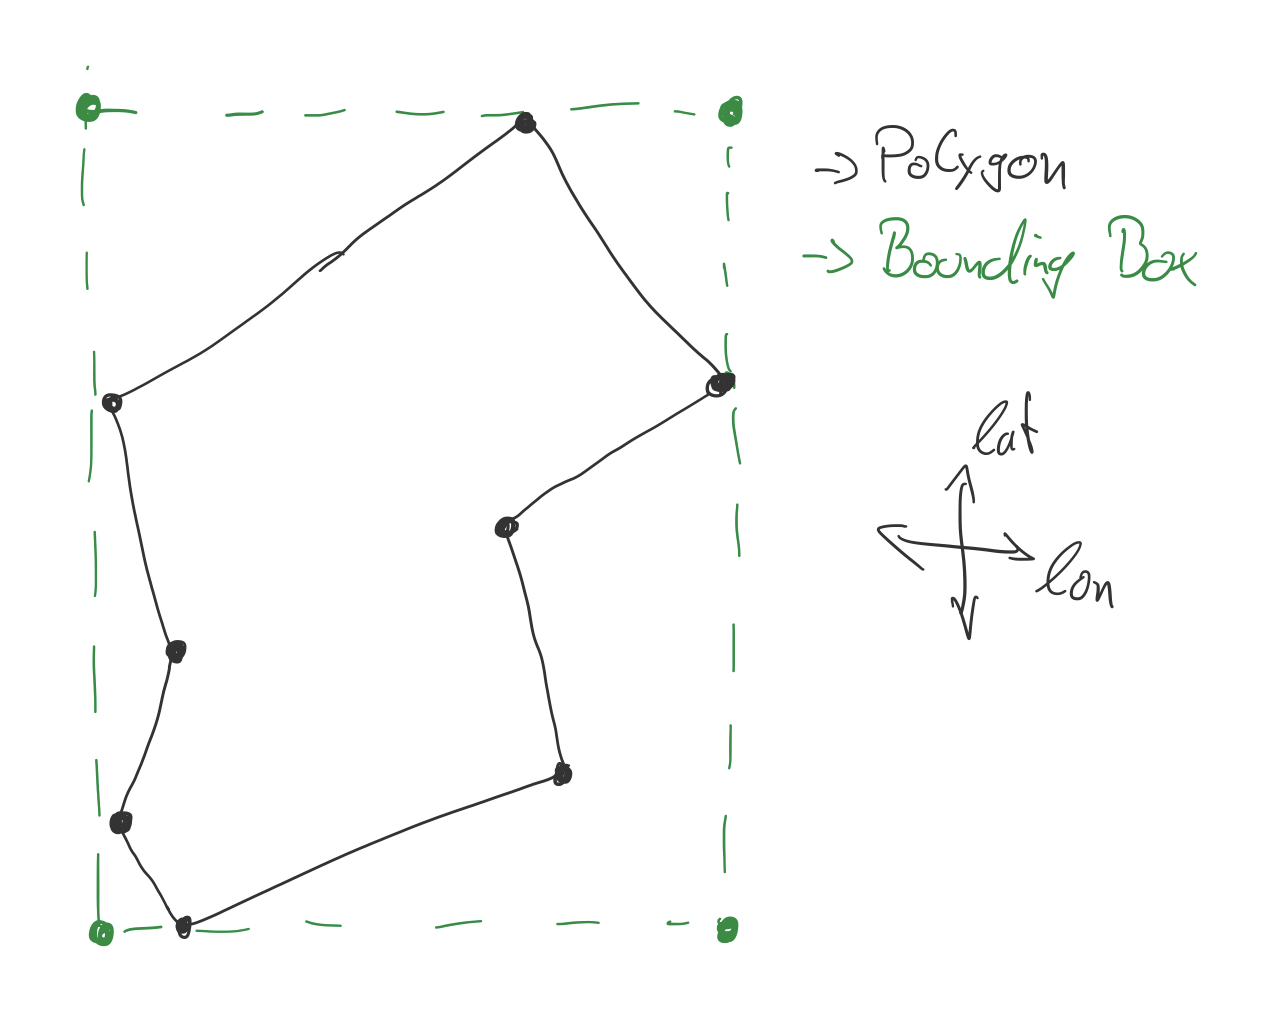 → Polygon
→ Bounding Box
lat
lon